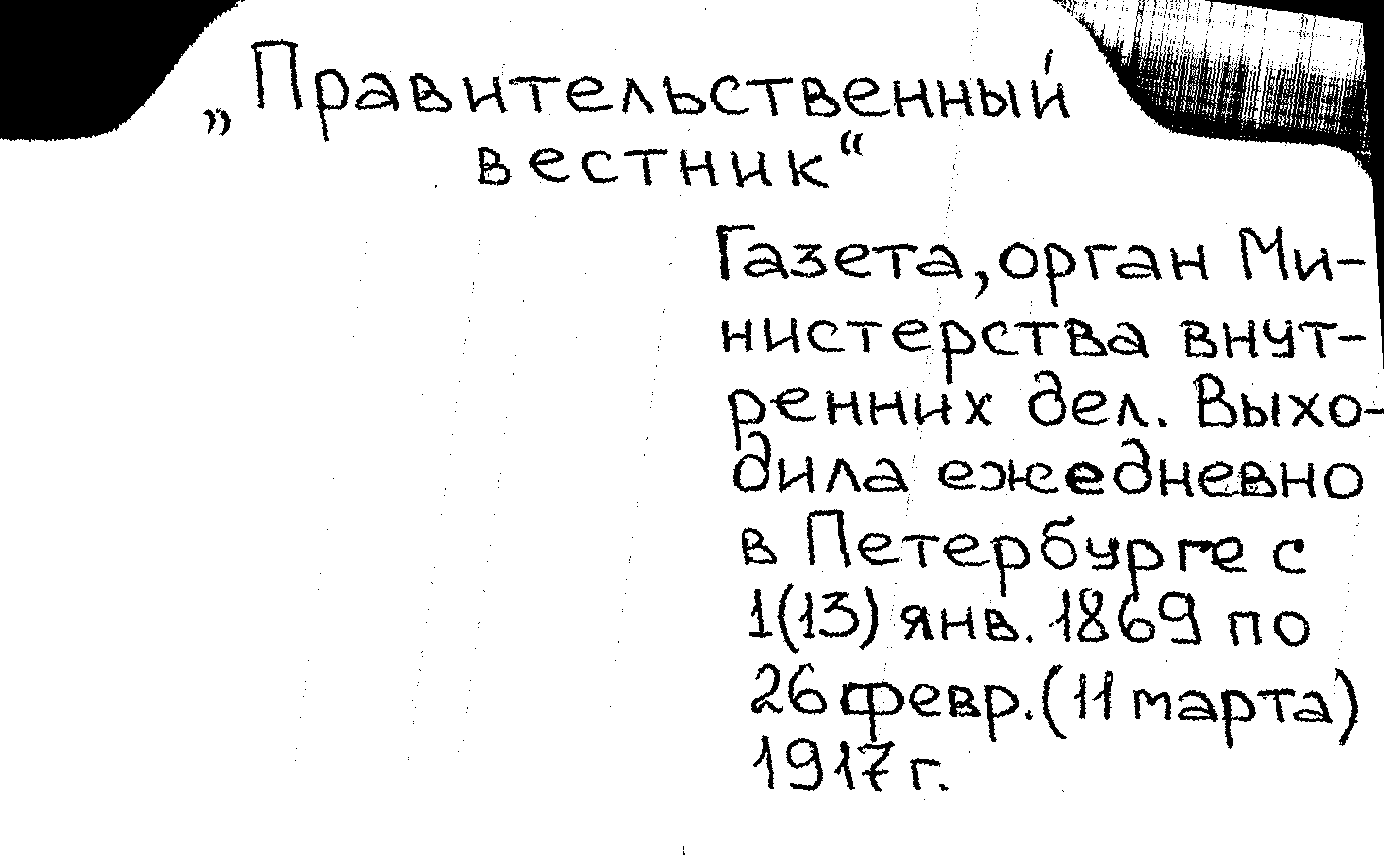 „Правительственный
вестник“
Газета, орган Ми-
нистерства внут-
ренних дел. Выхо-
дила ежедневно
в Петербурге с
1(13) янв. 1869 по
26 февр. (11 марта)
1917 г.